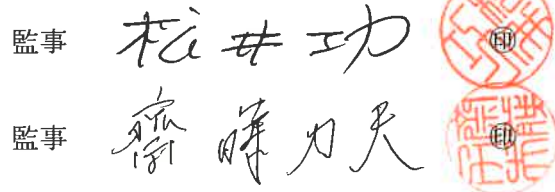 監事 松井功 印
監事 齋藤力夫 印